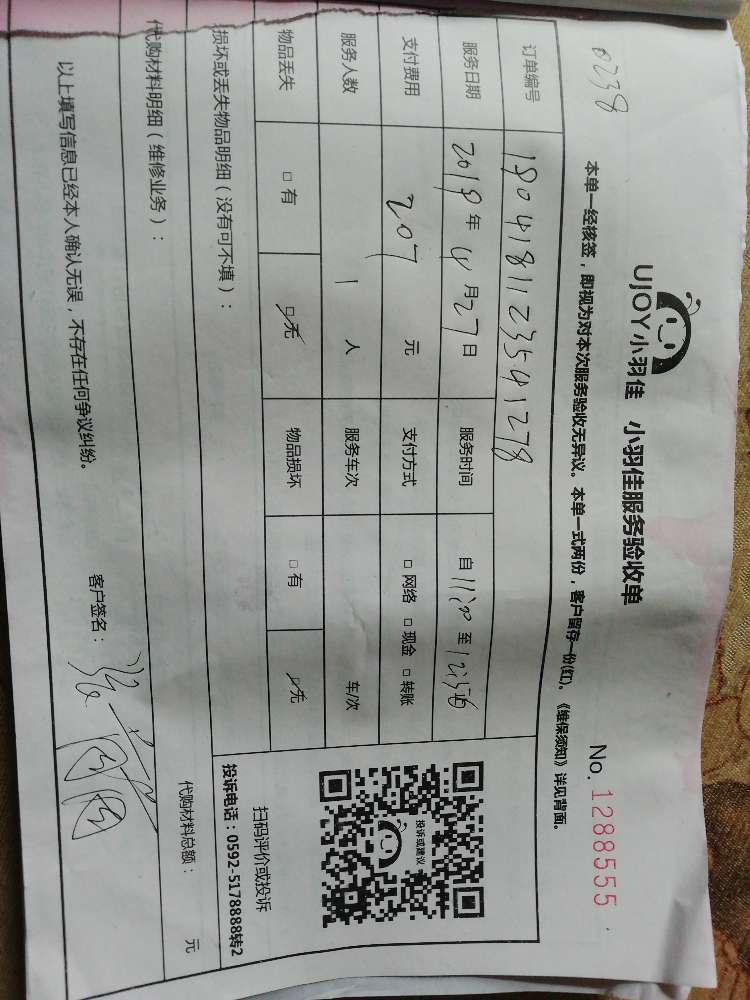 0238
UJOY小羽佳 小羽佳服务验收单
No. 1288555
本单一经核签，即视为对本次服务验收无异议。本单一式两份，客户留存一份(红)。《维保须知》详见背面。
订单编号 180418112354 1278
服务日期 2018年4月27日 服务时间 自11:20至
支付费用 207元 支付方式 □网络 □现金 □转账
服务人数 1人 服务车次 车/次
物品丢失 □有 ☑无 物品损坏 □有 ☑无
投诉或建议
扫码评价或投诉
投诉电话：0592-5178888转2
损坏或丢失物品明细（没有可不填）：
代购材料明细（维修业务）： 代购材料总额： 元
以上填写信息已经本人确认无误，不存在任何争议纠纷。 客户签名：